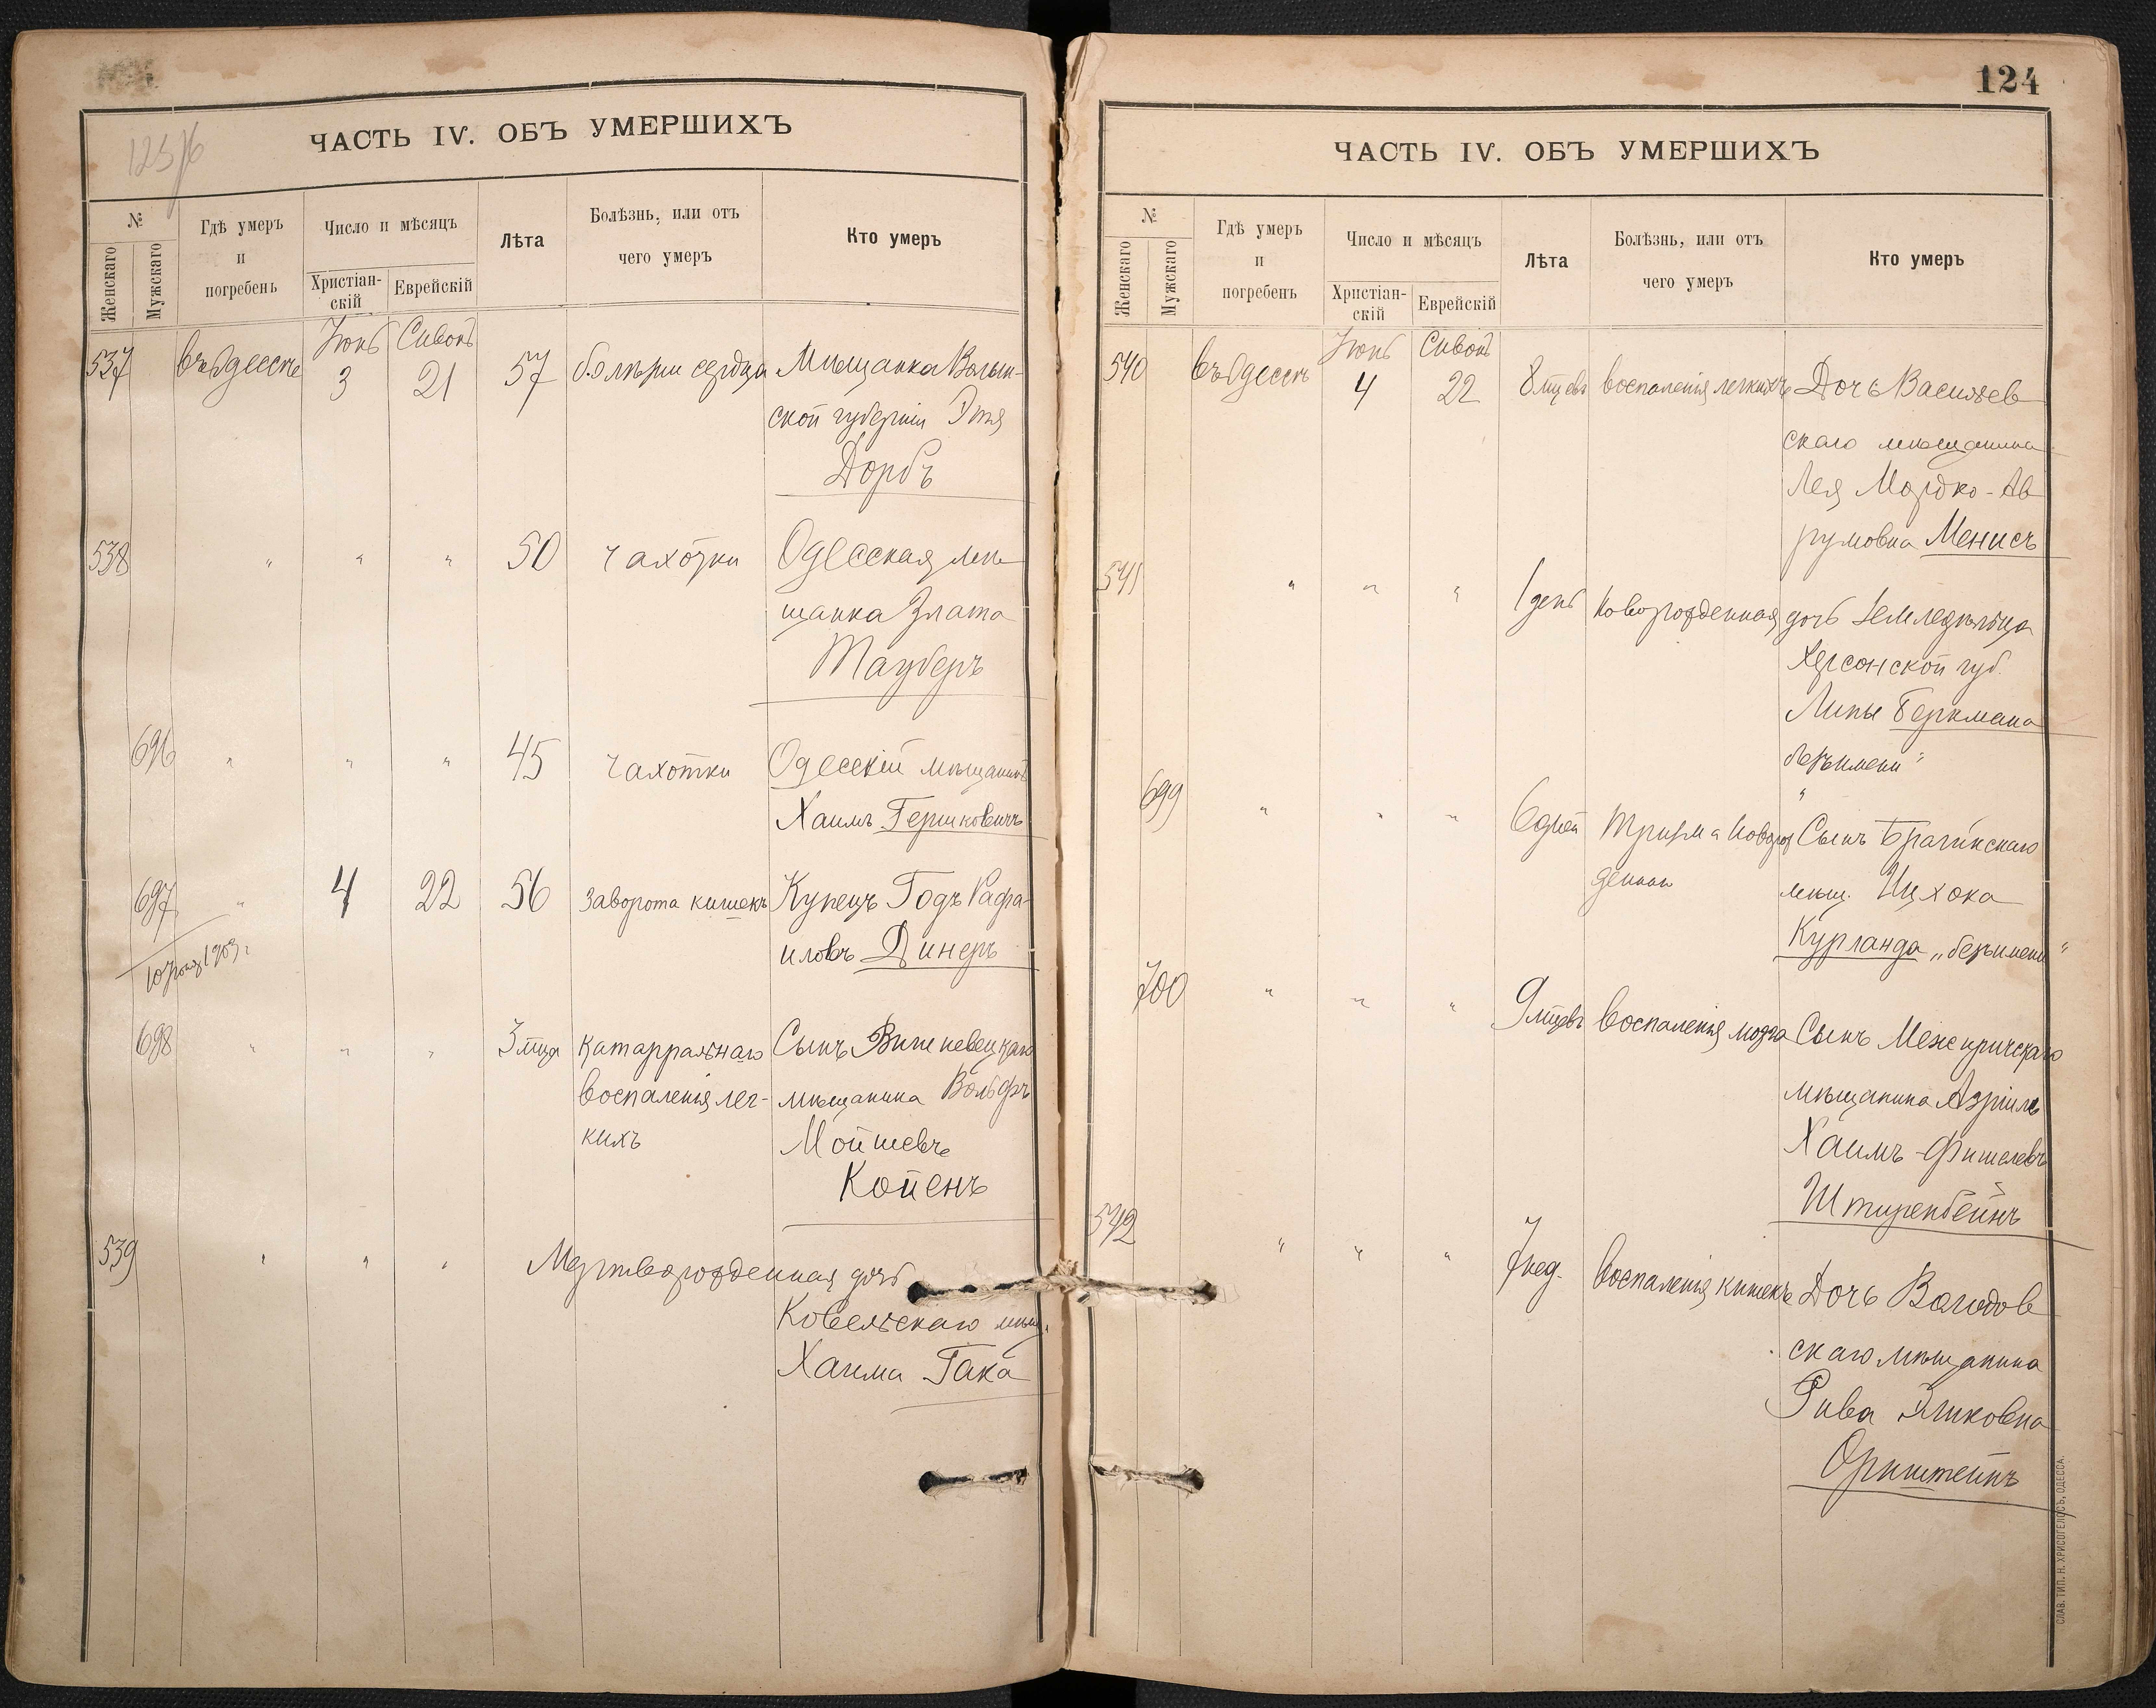 123/16
ЧАСТЬ IV. ОБЪ УМЕРШИХЪ
№
Женскаго
Мужскаго
Гдѣ умеръ
и
погребенъ
Число и мѣсяцъ
Христіан-
скій
Еврейскій
Лѣта
Болѣзнь, или отъ
чего умеръ
Кто умеръ
Іюнь Сивонъ
537 въ Одессѣ 3 21 57 болѣзни сердца Мѣщанка Волын-
ской губерніи Этя
Дорбъ
538 " " " 50 чахотки Одесская мѣ-
щанка Злата
Тауберъ
696 " " " 45 чахотки Одесскій мѣщанинъ
Хаимъ Гершковичъ
697 " 4 22 56 заворота кишекъ Купецъ Годъ Рафа-
иловъ Динеръ
1903 г
698 " " " 3 мца катарральнаго Сынъ Вишневецкаго
воспаленія лег- мѣщанина Вольфъ
кихъ Мойшевъ
Койенъ
539 " " " Мертворожденная дочь
Ковельскаго мѣщ.
Хаима Гака
124
ЧАСТЬ IV. ОБЪ УМЕРШИХЪ
№
Женскаго
Мужскаго
Гдѣ умеръ
и
погребенъ
Число и мѣсяцъ
Христіан-
скій
Еврейскій
Лѣта
Болѣзнь, или отъ
чего умеръ
Кто умеръ
Іюнь Сивонъ
540 въ Одессѣ 4 22 8 мцевъ воспаленія легкихъ Дочь Васильев
скаго мѣщанина
Лея Мордко-Ав
румовна Менисъ
541 " " " 1 день новорожденная дочь земледѣльца
Херсонской губ.
Липы Беркмана
"безъ имени"
699 " " " 6 дней тризма новорож Сынъ Брагинскаго
денных мѣщ. Ицхока
Курланда „безъ имени"
700 " " " 9 мцевъ воспаленія мозга Сынъ Межиричскаго
мѣщанина Азріилъ
Хаимъ-Фишелевъ
Штиренбейнъ
542 " " " 7 нед. воспаленія кишекъ Дочь
скаго мѣщанина
Рива Эликовна
Орнштейнъ
СЛАВ. ТИП. Н. ХРИСОГЕЛОСЪ, ОДЕССА.